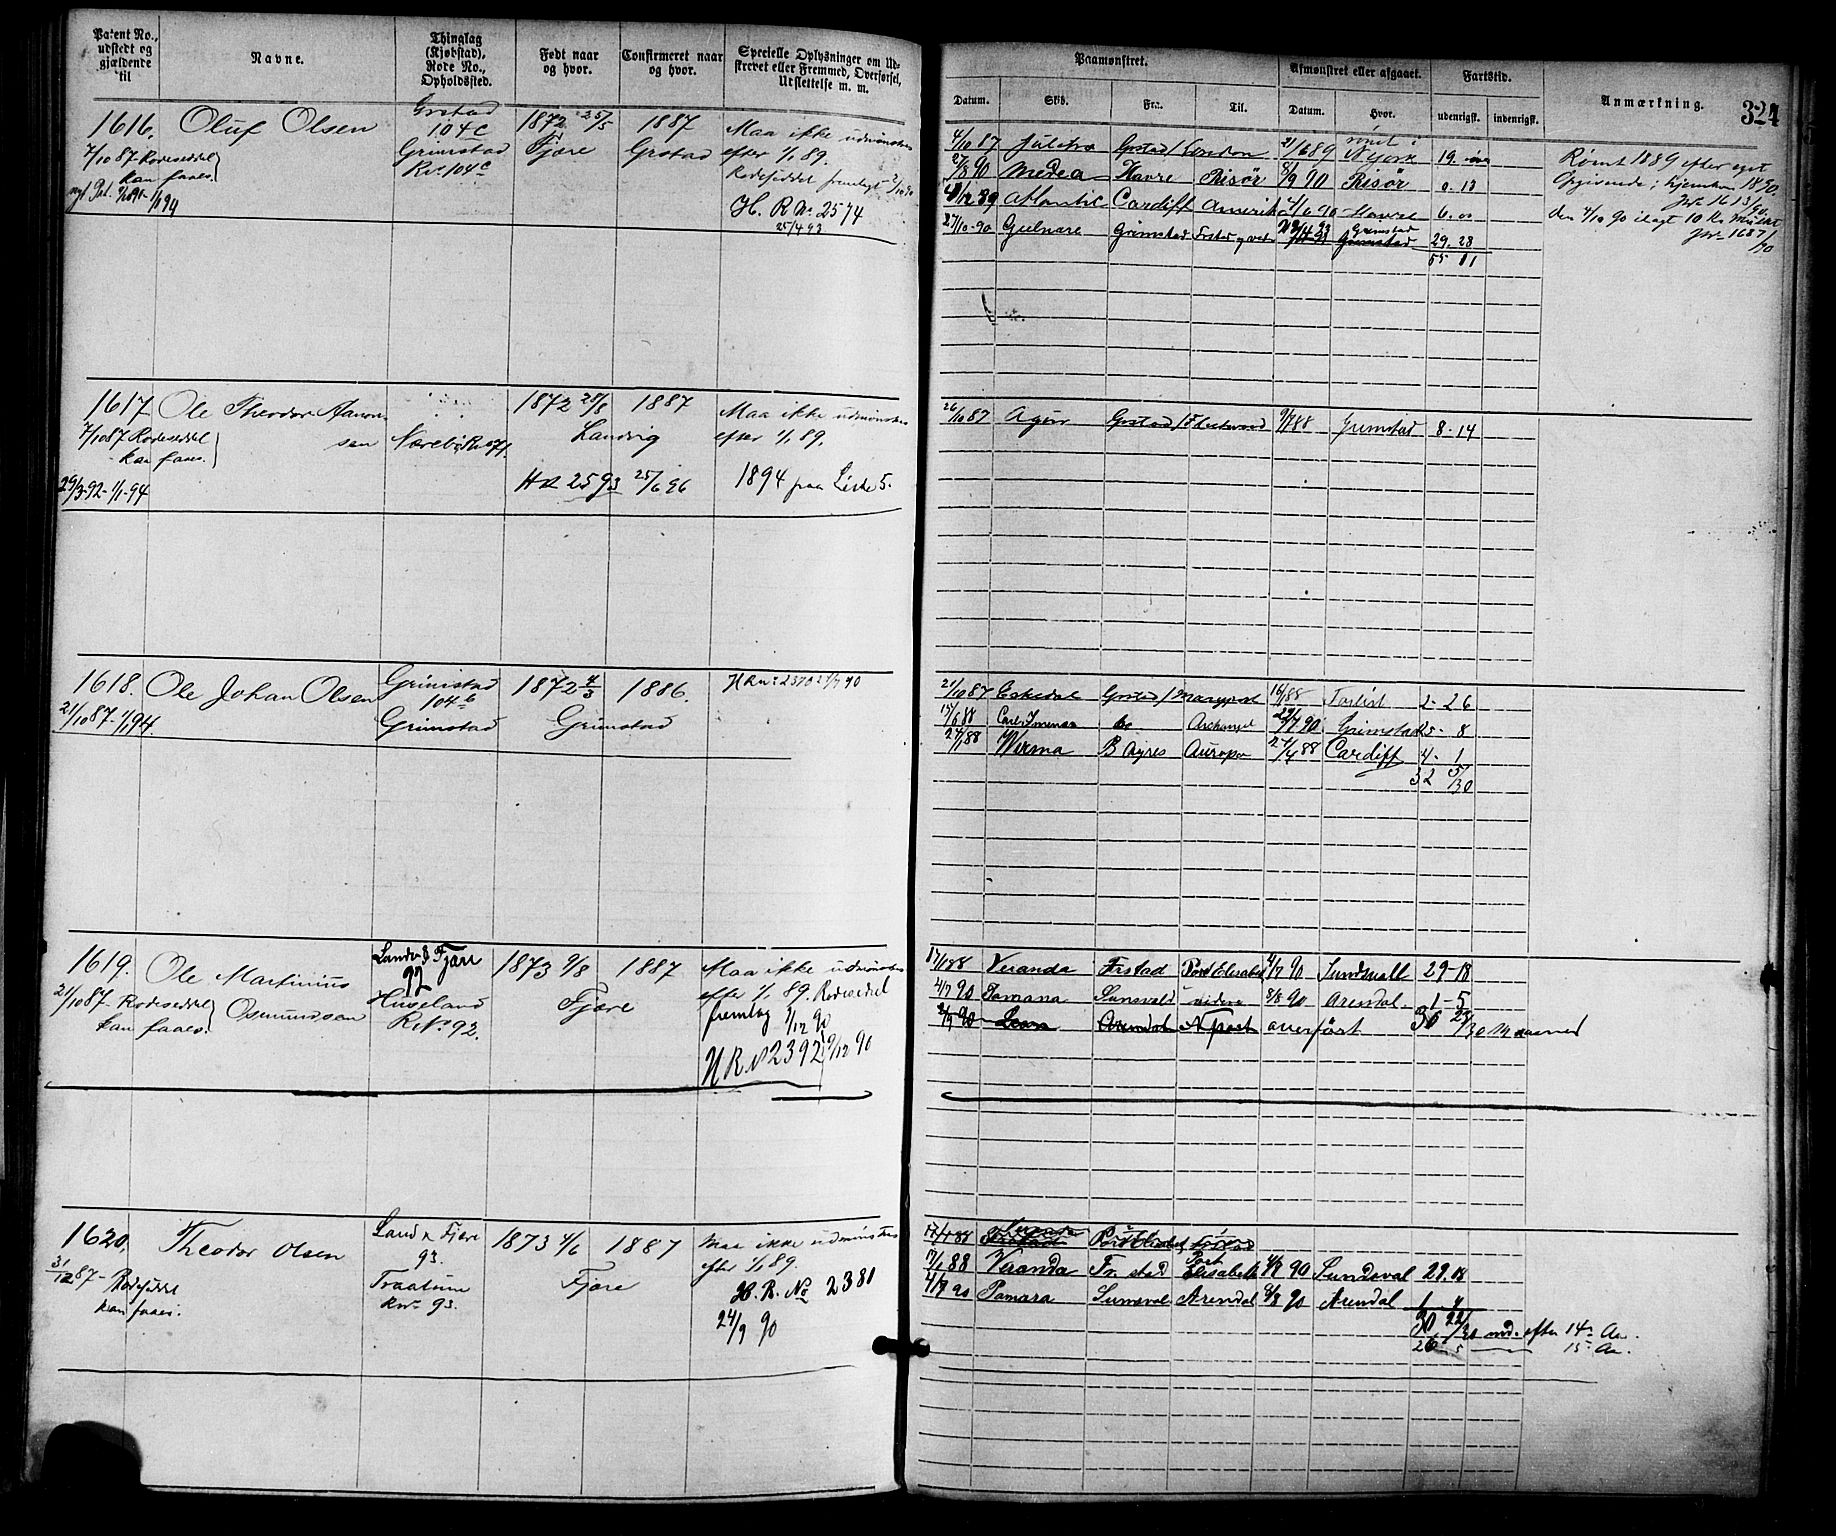 Patent No., udstedt og gjældende til
Navne.
Thinglag (Kjøbstad), Rode No., Opholdssted.
Født naar og hvor.
Confirmeret naar og hvor.
Specielle Oplysninger om Udstreret eller Fremmed, Overførsel, Udslettelse m. m.
Paamønstret.
Datum. Skib. Fra. Til.
Afmønstret eller afgaaet.
Datum. Hvor.
Fartstid.
udenrigsk. indenrigsk.
Anmærkning.
324
1616. Oluf Olsen
7/10 87 Rodeseddel
kan faaes.
Grstad
104c
Grimstad
RNo 104c
1872 25/5
Fjære
1887
Grstad
Maa ikke udmønstres
efter 1/1 89.
Rodeseddel fremlagt
H. R. No. 2574
25/4 93
4/10 87 Grstad London 21/6 89 N York 19.
27/8 90 Medea Havre Risør 8/9 90 Risør 0. 13
Atlantic Cardiff Amerika 4/6 90 Havre 6. 00
27/10 90 Gulnare Grimstad Grimstad 29. 28
55 11
Rømt 1889 efter eget
Opgivende; hjemkom 1890
Jnr 1613/90
den 4/10 90 ilagt 10 Kr Mulkt
Jnr 1687/90
1617. Ole Theodor Aanonsen
7/10 87 Rodeseddel
kan faaes.
29/3 92 - 1/1 94
1872 28/8 1887
Landvig
HR 2593 25/6 96
Maa ikke udmønstres
efter 1/1 89.
1894 paa Liste 5.
26/10 87 Agur Grstad 9/7 88 Grimstad 8 - 14
1618. Ole Johan Olsen
21/10 87 - 1/1 94.
Grimstad
104b
Grimstad
1872 4/3 1886.
Grimstad
H R No 2370 21/7 90
21/10 87 Eskedal Grstad 2 - 26
15/6 88 Do Archangel 29/7 90 Grimstad 25 - 8
Werma B Ayres Europa 88 Cardiff 4 - 1
32 5/30
1619. Ole Martinius
Osmundsen
21/10 87 Rodeseddel
kan faaes.
Landv & Fjære
92
Huseland
RNo 92.
1873 9/8 1887
Fjære
Maa ikke udmønstres
efter 1/1 89. Rodeseddel
fremlag 1/12 90
H R No 2392 9/12 90
17/1 88 Veranda Frstad Port Elisabeth 4/7 90 Sundsvall 29 - 18
4/7 90 Tamara Sunsvald videre 8/8 90 Arendal 1 - 5
2/9 90 Leon Arendal N port overført 30 23/30 Maaned
1620. Theodor Olsen
31/12 87 - Rodeseddel
kan faaes.
Land & Fjære
93.
Traatum
RNo 93.
1873 4/6 1887
Fjære
Maa ikke udmønstres
efter 1/1 89.
H. R. No 2381
24/9 90
17/1 88 Veranda
17/1 88 Veranda Fr. stad Port Elisabeth 4/7 90 Sundsval 29. 18
4/7 90 Tamara Sunsval Arendal 8/8 90 Arendal 1 4
30 22/30 md. efter 14de Aar.
26 5 — 15 Aar.